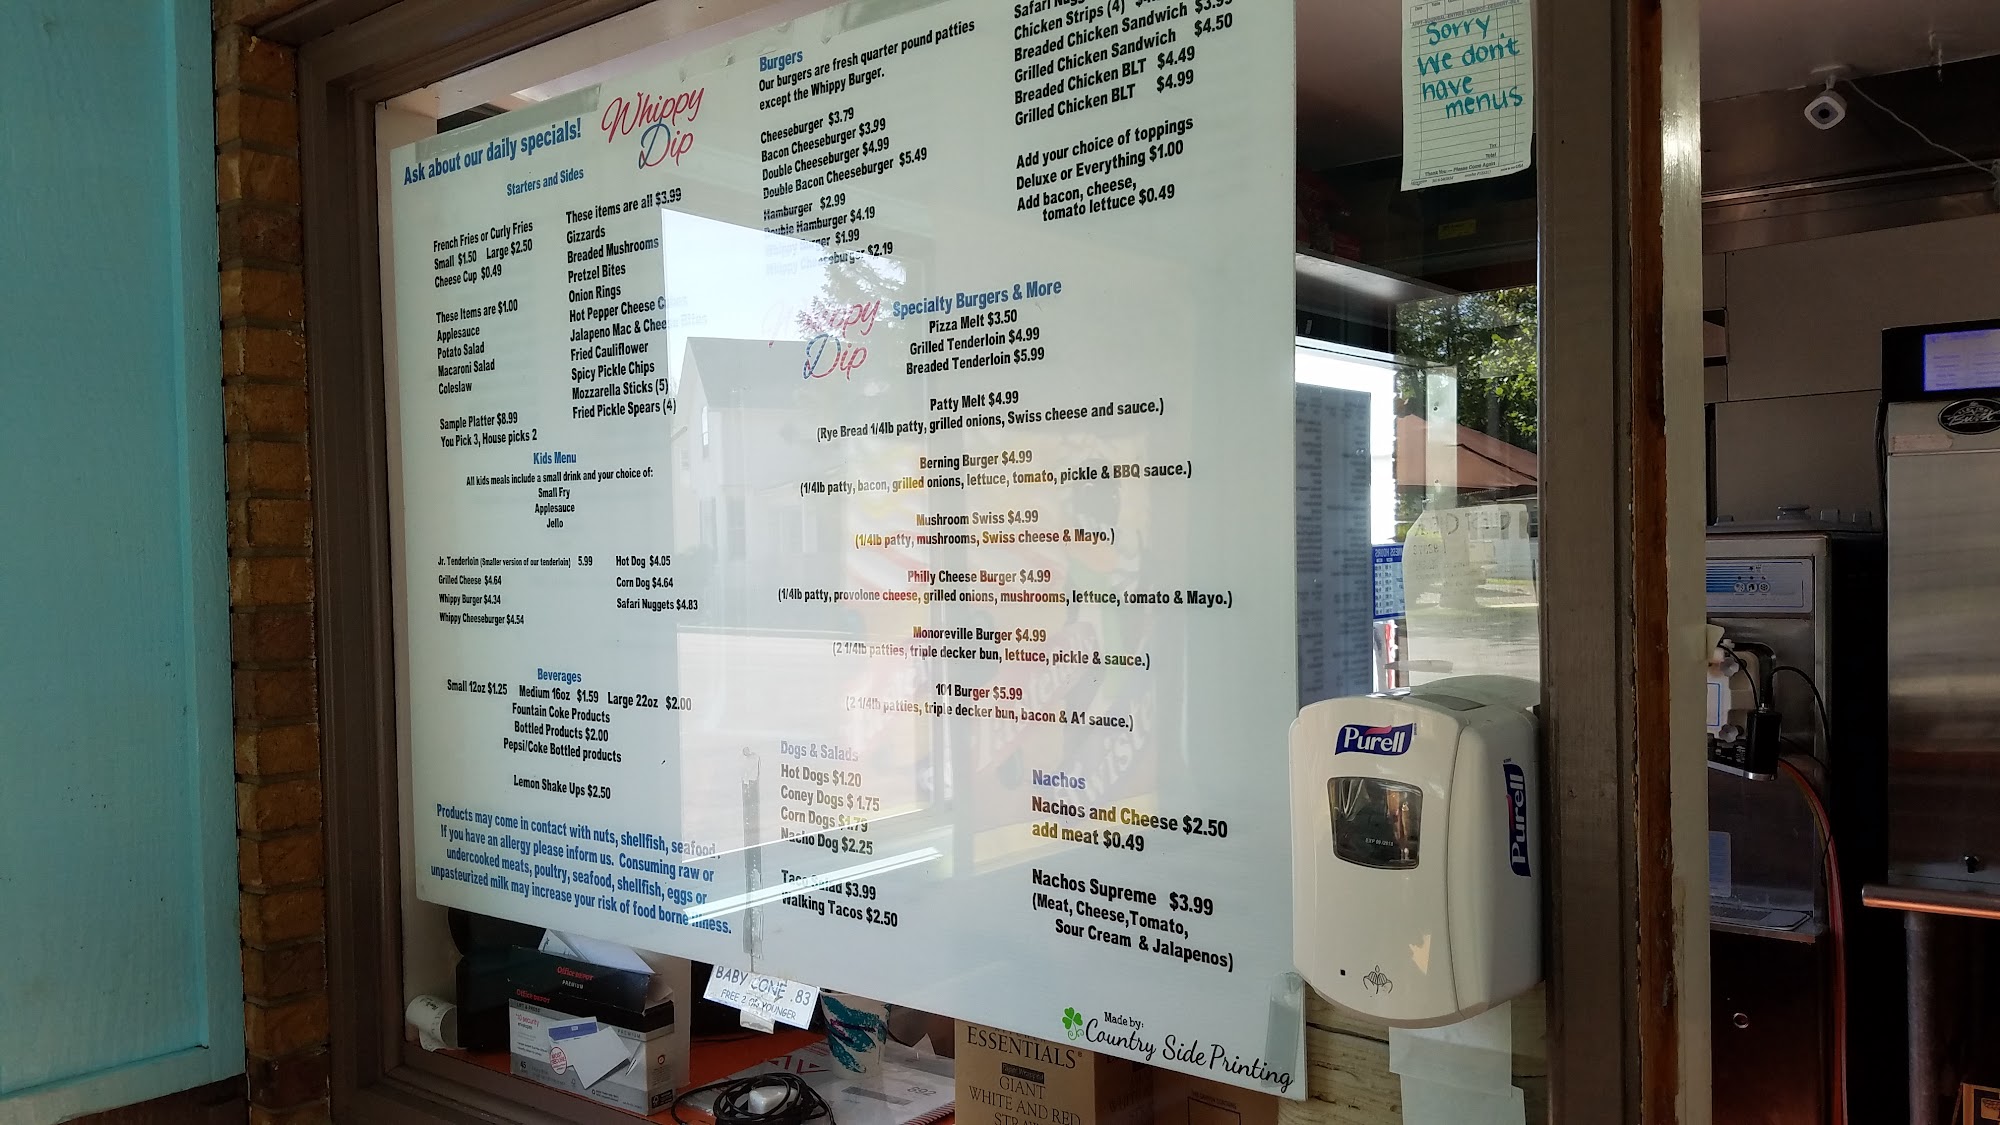 Ask about our daily specials!
Whippy
Dip
Starters and Sides
French Fries or Curly Fries
Small $1.50 Large $2.50
Cheese Cup $0.49
These Items are $1.00
Applesauce
Potato Salad
Macaroni Salad
Coleslaw
Sample Platter $8.99
You Pick 3, House picks 2
These items are all $3.99
Gizzards
Breaded Mushrooms
Pretzel Bites
Onion Rings
Hot Pepper Cheese
Jalapeno Mac & Cheese Bites
Fried Cauliflower
Spicy Pickle Chips
Mozzarella Sticks (5)
Fried Pickle Spears (4)
Kids Menu
All kids meals include a small drink and your choice of:
Small Fry
Applesauce
Jello
Jr. Tenderloin (Smaller version of our tenderloin) 5.99
Grilled Cheese $4.64
Whippy Burger $4.34
Whippy Cheeseburger $4.54
Hot Dog $4.05
Corn Dog $4.64
Safari Nuggets $4.83
Beverages
Small 12oz $1.25 Medium 16oz $1.59 Large 22oz $2.00
Fountain Coke Products
Bottled Products $2.00
Pepsi/Coke Bottled products
Lemon Shake Ups $2.50
Products may come in contact with nuts, shellfish, seafood.
If you have an allergy please inform us. Consuming raw or
undercooked meats, poultry, seafood, shellfish, eggs or
unpasteurized milk may increase your risk of food borne illness.
Burgers
Our burgers are fresh quarter pound patties
except the Whippy Burger.
Cheeseburger $3.79
Bacon Cheeseburger $3.99
Double Cheeseburger $4.99
Double Bacon Cheeseburger $5.49
Hamburger $2.99
Double Hamburger $4.19
Whippy Burger $1.99
Whippy Cheeseburger $2.19
Safari
Chicken Strips (4)
Breaded Chicken Sandwich $3.99
Grilled Chicken Sandwich $4.50
Breaded Chicken BLT $4.49
Grilled Chicken BLT $4.99
Add your choice of toppings
Deluxe or Everything $1.00
Add bacon, cheese,
tomato lettuce $0.49
Whippy
Dip
Specialty Burgers & More
Pizza Melt $3.50
Grilled Tenderloin $4.99
Breaded Tenderloin $5.99
Patty Melt $4.99
(Rye Bread 1/4lb patty, grilled onions, Swiss cheese and sauce.)
Berning Burger $4.99
(1/4lb patty, bacon, grilled onions, lettuce, tomato, pickle & BBQ sauce.)
Mushroom Swiss $4.99
(1/4lb patty, mushrooms, Swiss cheese & Mayo.)
Philly Cheese Burger $4.99
(1/4lb patty, provolone cheese, grilled onions, mushrooms, lettuce, tomato & Mayo.)
Monoreville Burger $4.99
(2 1/4lb patties, triple decker bun, lettuce, pickle & sauce.)
101 Burger $5.99
(2 1/4lb patties, triple decker bun, bacon & A1 sauce.)
Dogs & Salads
Hot Dogs $1.20
Coney Dogs $ 1.75
Corn Dogs $1.79
Nacho Dog $2.25
Taco Salad $3.99
Walking Tacos $2.50
Nachos
Nachos and Cheese $2.50
add meat $0.49
Nachos Supreme $3.99
(Meat, Cheese,Tomato,
Sour Cream & Jalapenos)
Made by:
Country Side Printing
BABY CONE .83
FREE 2 OR YOUNGER
Sorry
We don't
have
menus
Tax
Total
Thank You — Please Come Again
Purell
Purell
Office DEPOT
PREMIUM
ESSENTIALS
GIANT
WHITE AND RED